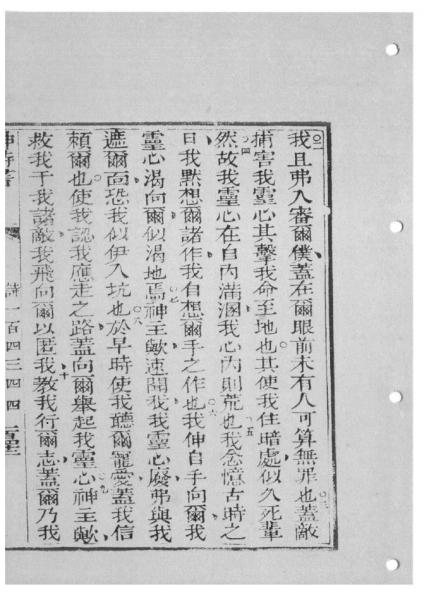 我且弗入審爾僕蓋在爾眼前未有人可算無罪也蓋敵
捕害我靈心其擊我命至地也其使我住暗處似久死輩
然故我靈心在自內滿溷我心內則荒也我念憶古時之
日我默想爾諸作我自想爾手之作也我伸自手向爾我
靈心渴向爾似渴地焉神主歟速聞我我靈心廢弗與我
遮爾面恐我似伊入坑也於早時使我聽爾寵愛蓋我信
賴爾也使我認我應走之路蓋向爾舉起我靈心神主歟
救我于我諸敵我飛向爾以匿我教我行爾志蓋爾乃我
神詩書 詩一百四三四四